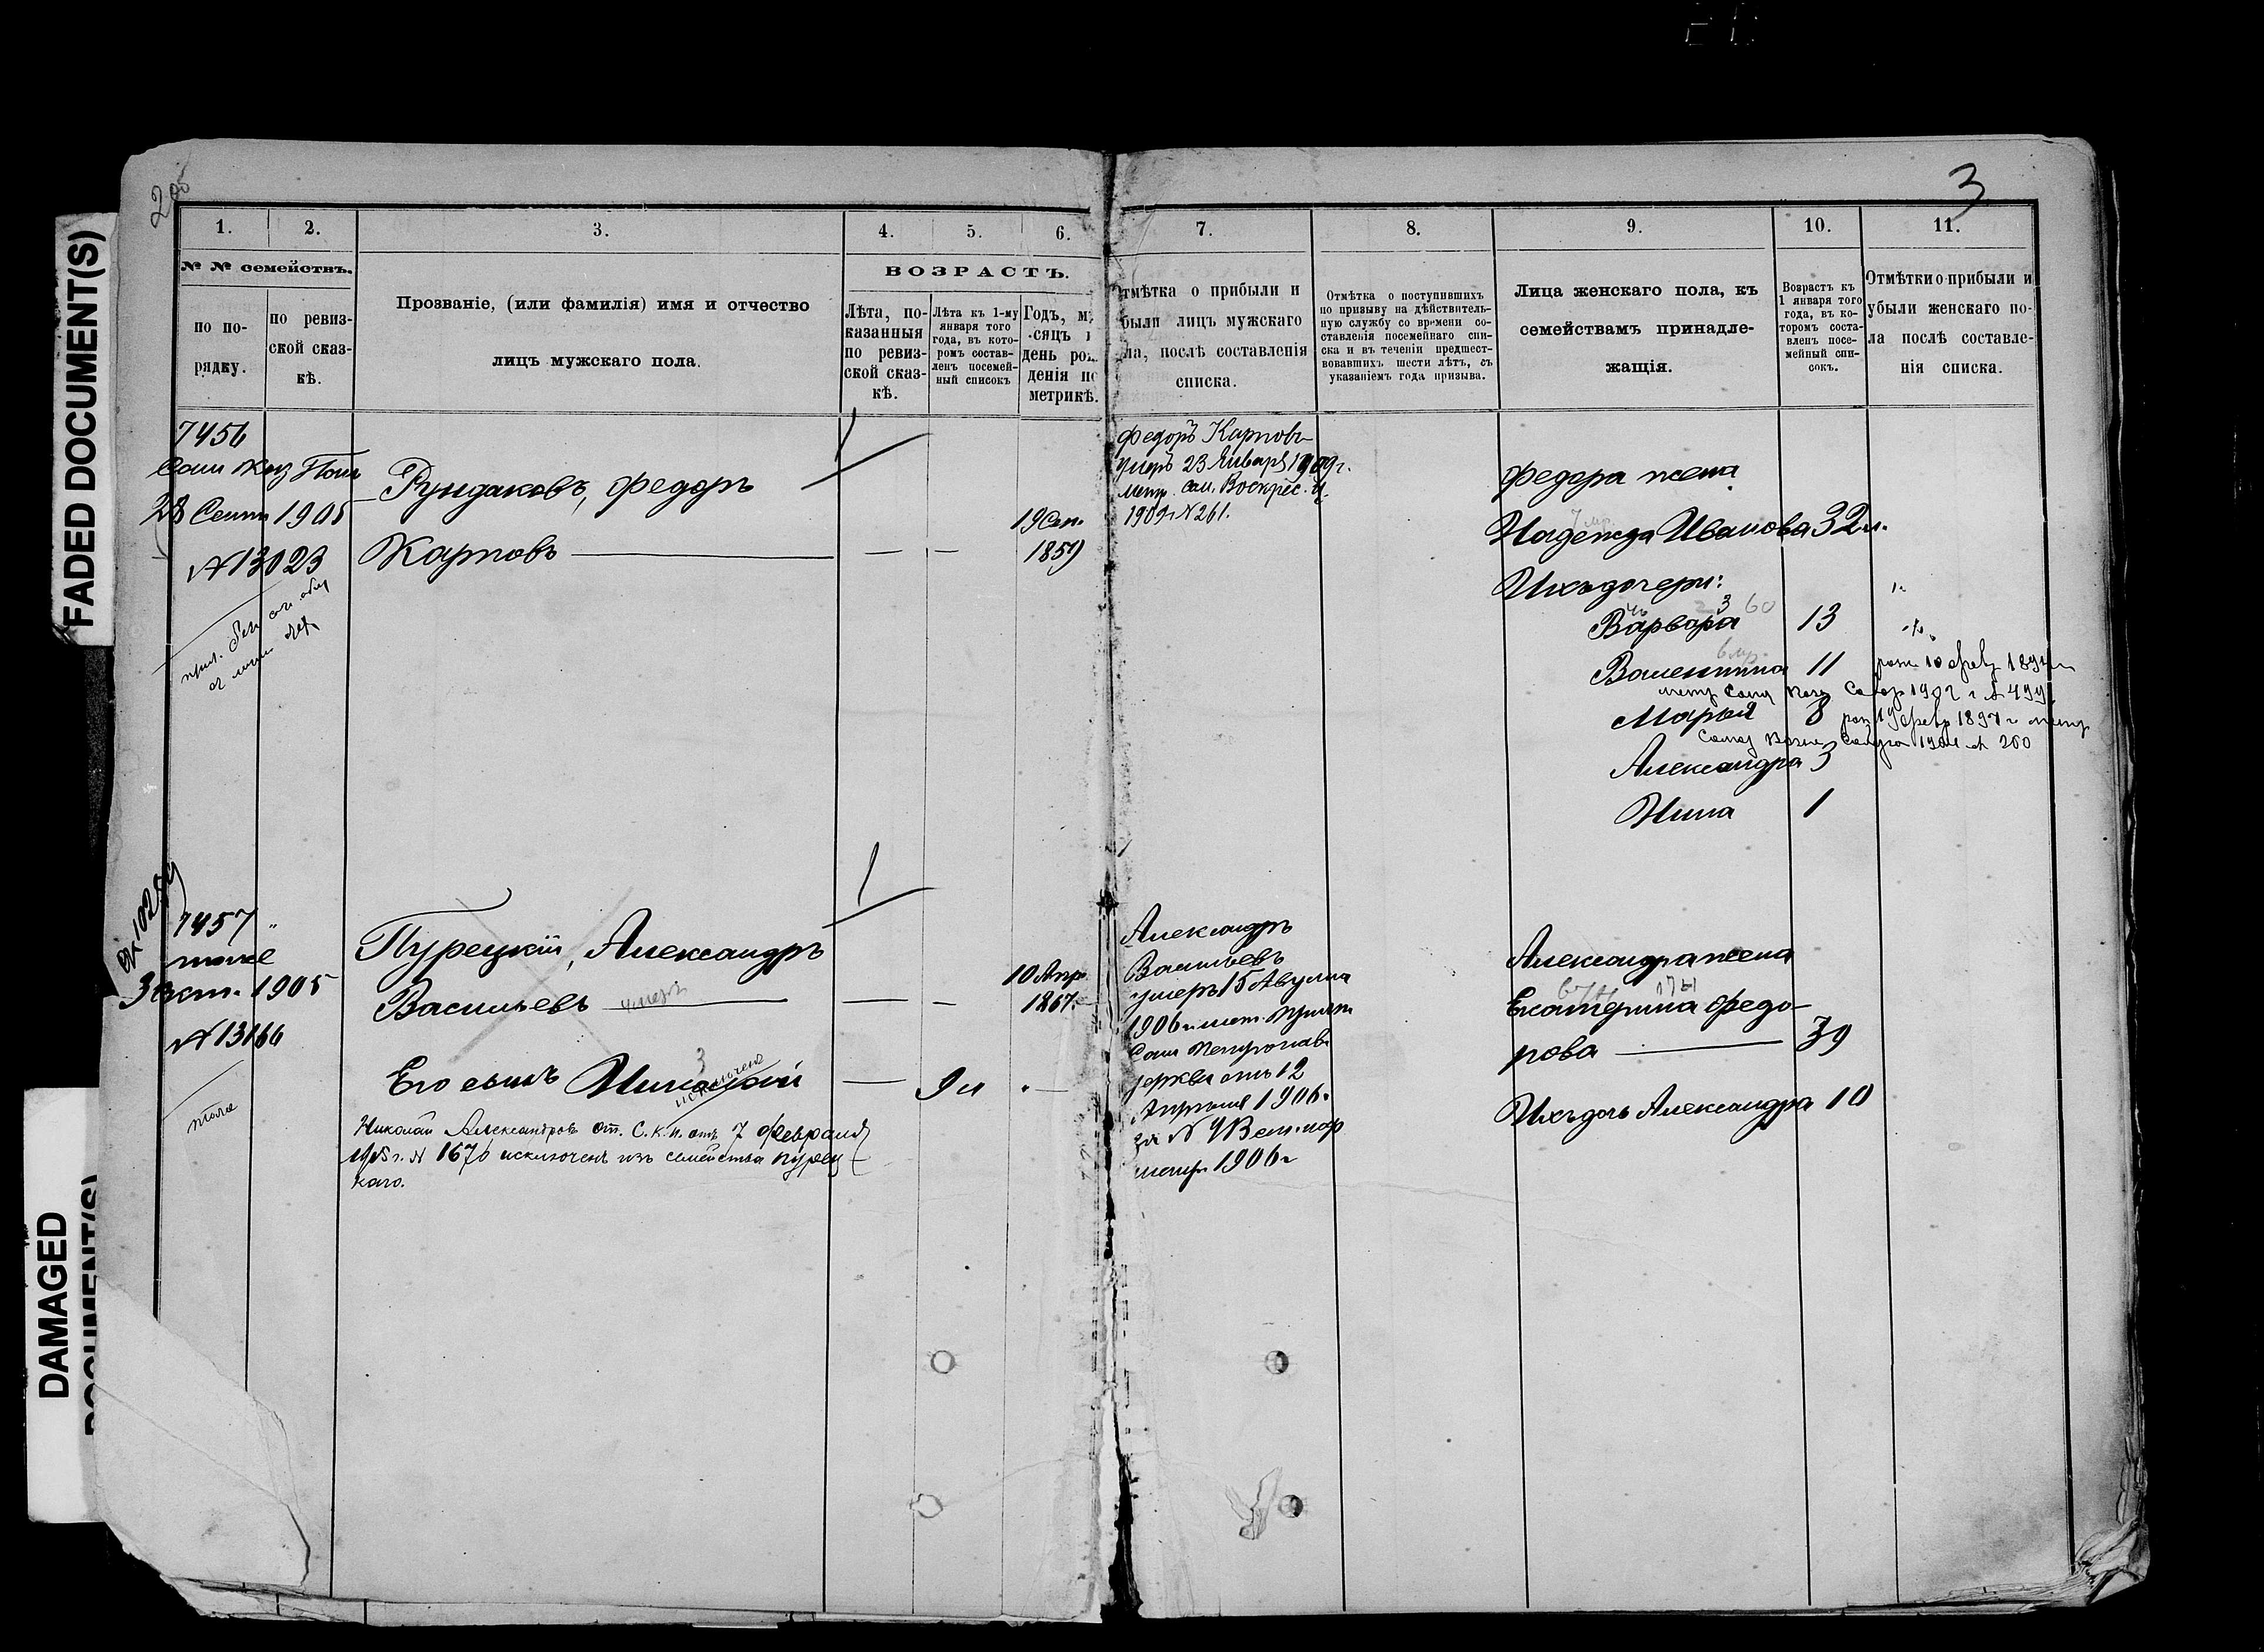 FADED DOCUMENT(S)
DAMAGED
DOCUMENT(S)
3
1.
2.
3.
4.
5.
6.
№ № семействъ.
по по-
рядку.
по ревиз-
ской сказ-
кѣ.
Прозваніе, (или фамилія) имя и отчество
лицъ мужскаго пола.
ВОЗРАСТЪ.
Лѣта, по-
казанныя
по ревиз-
ской сказ-
кѣ.
Лѣта къ 1-му
января того
года, въ кото-
ромъ состав-
ленъ посемей-
ный списокъ
Годъ, мѣ
сяцъ
день рож
денія по
метрикѣ.
7.
8.
9.
10.
11.
тмѣтка о прибыли и
были лицъ мужскаго
ла, послѣ составленія
списка.
Отмѣтка о поступившихъ
по призыву на дѣйствитель-
ную службу со времени со-
ставленія посемейнаго спи-
ска и въ теченіи предшест-
вовавшихъ шести лѣтъ, съ
указаніемъ года призыва.
Лица женскаго пола, къ
семействамъ принадле-
жащія.
Возрастъ къ
1 января того
года, въ ко-
торомъ соста-
вленъ посе-
мейный спи-
сокъ.
Отмѣтки о прибыли и
убыли женскаго по-
ла послѣ составле-
нія списка.
7456
28 Сент 1905
№ 13023
Рундаковъ, Федоръ
Карповъ
19 Сен.
1859
Федоръ Карповъ
умеръ 23 Января 1909 г.
метр. сам. Воскрес. ц.
1909 г. № 261.
Федора жена
Надежда Иванова 32 л.
Ихъ дочери:
Варвара 13
Валентина 11
Марья 8
Александра 3
Нина 1
7457
тоже
3 Окт. 1905
№ 13166
тоже
Пурецкій, Александръ
Васильевъ умеръ
10 Апр.
1867
Его сынъ Николай 9 л
исключенъ
Николай Александровъ оп. С. К. П. отъ 7 февраля
г. № 1676 исключенъ изъ семейства Пурец
каго.
Александръ
Васильевъ
умеръ 15 Августа
церкви отъ 12
1906 г.
Александра жена
Екатерина Федо-
рова 39
Ихъ дочь Александра 10